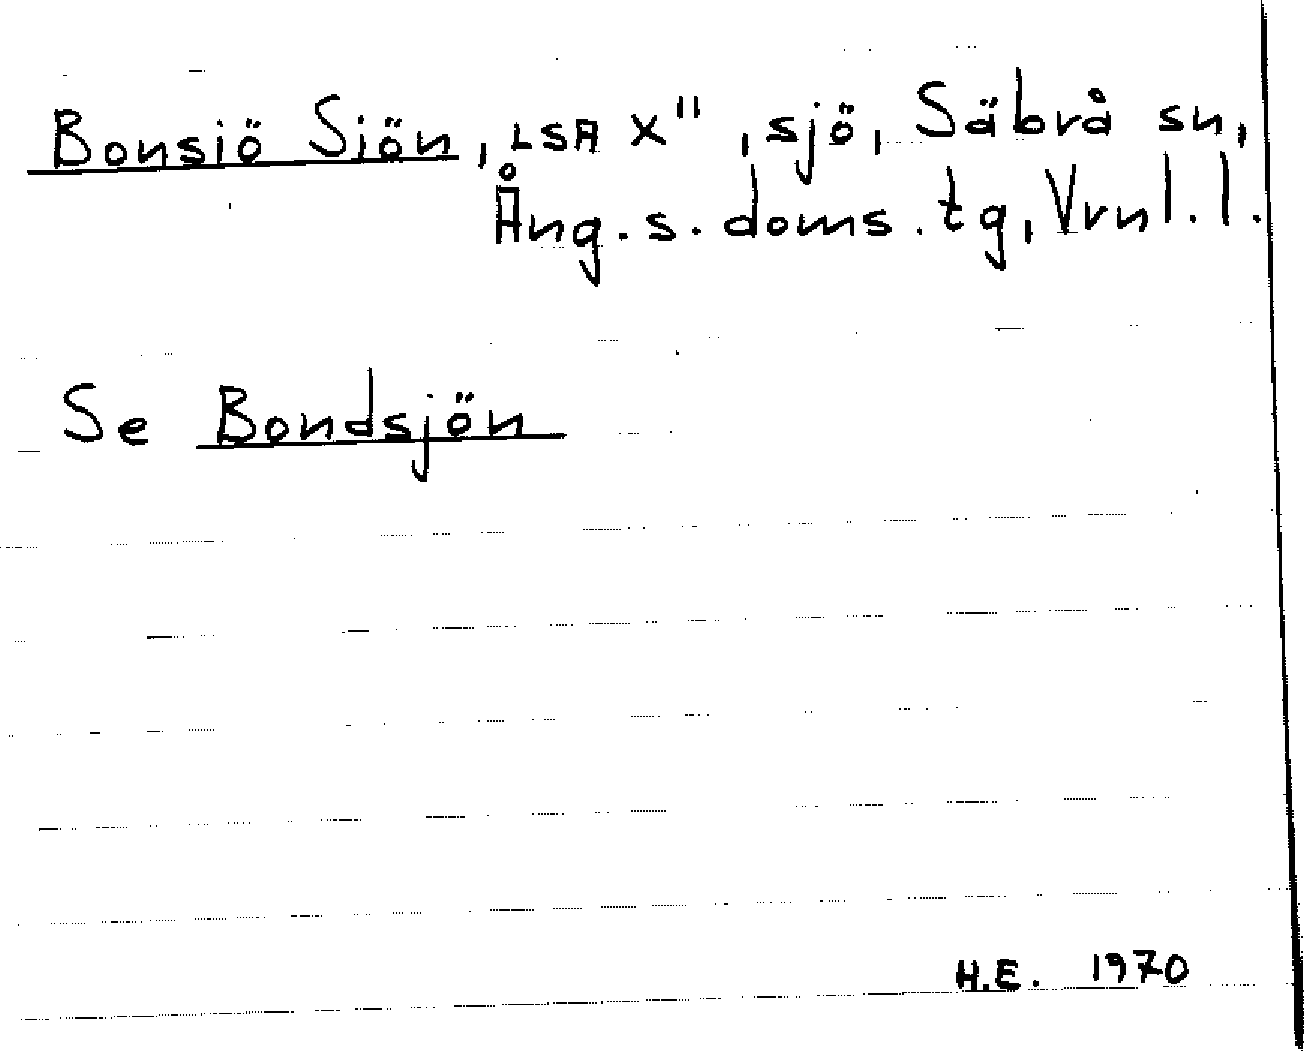 Bonsiö Siön, LSA X", sjö, Säbrå sn,
Ång. s. doms. tg, Vrnl. l.
Se Bondsjön
H.E. 1970